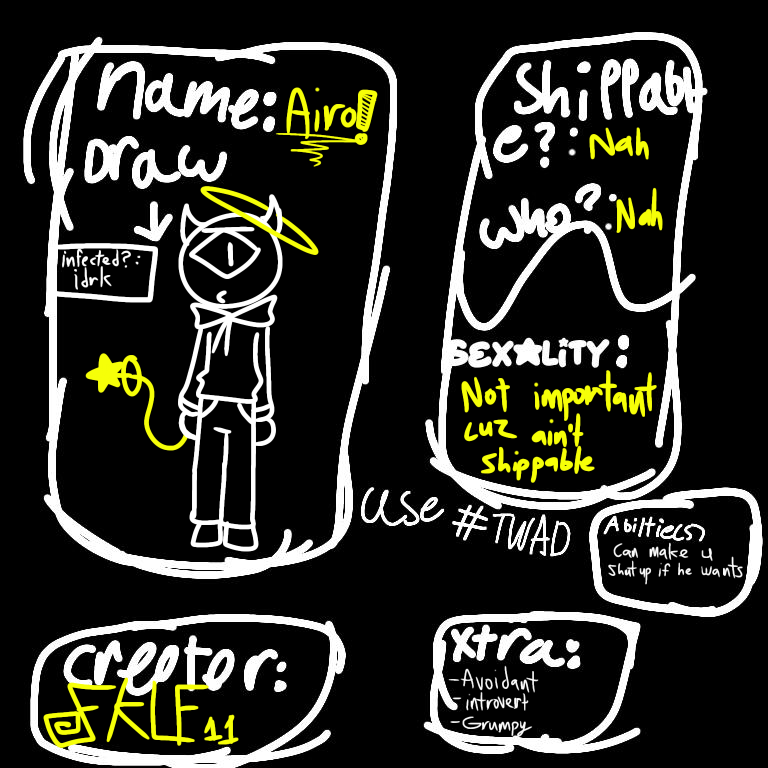 name: Airo!
Draw
infected?:
idrk
Shippabl
e?: Nah
who?: Nah
SEX★LiTY:
Not important
cuz ain't
shippable
use #TWAD
Abiltie(s)
Can make u
shut up if he wants
creator:
xtra:
-Avoidant
-introvert
-Grumpy